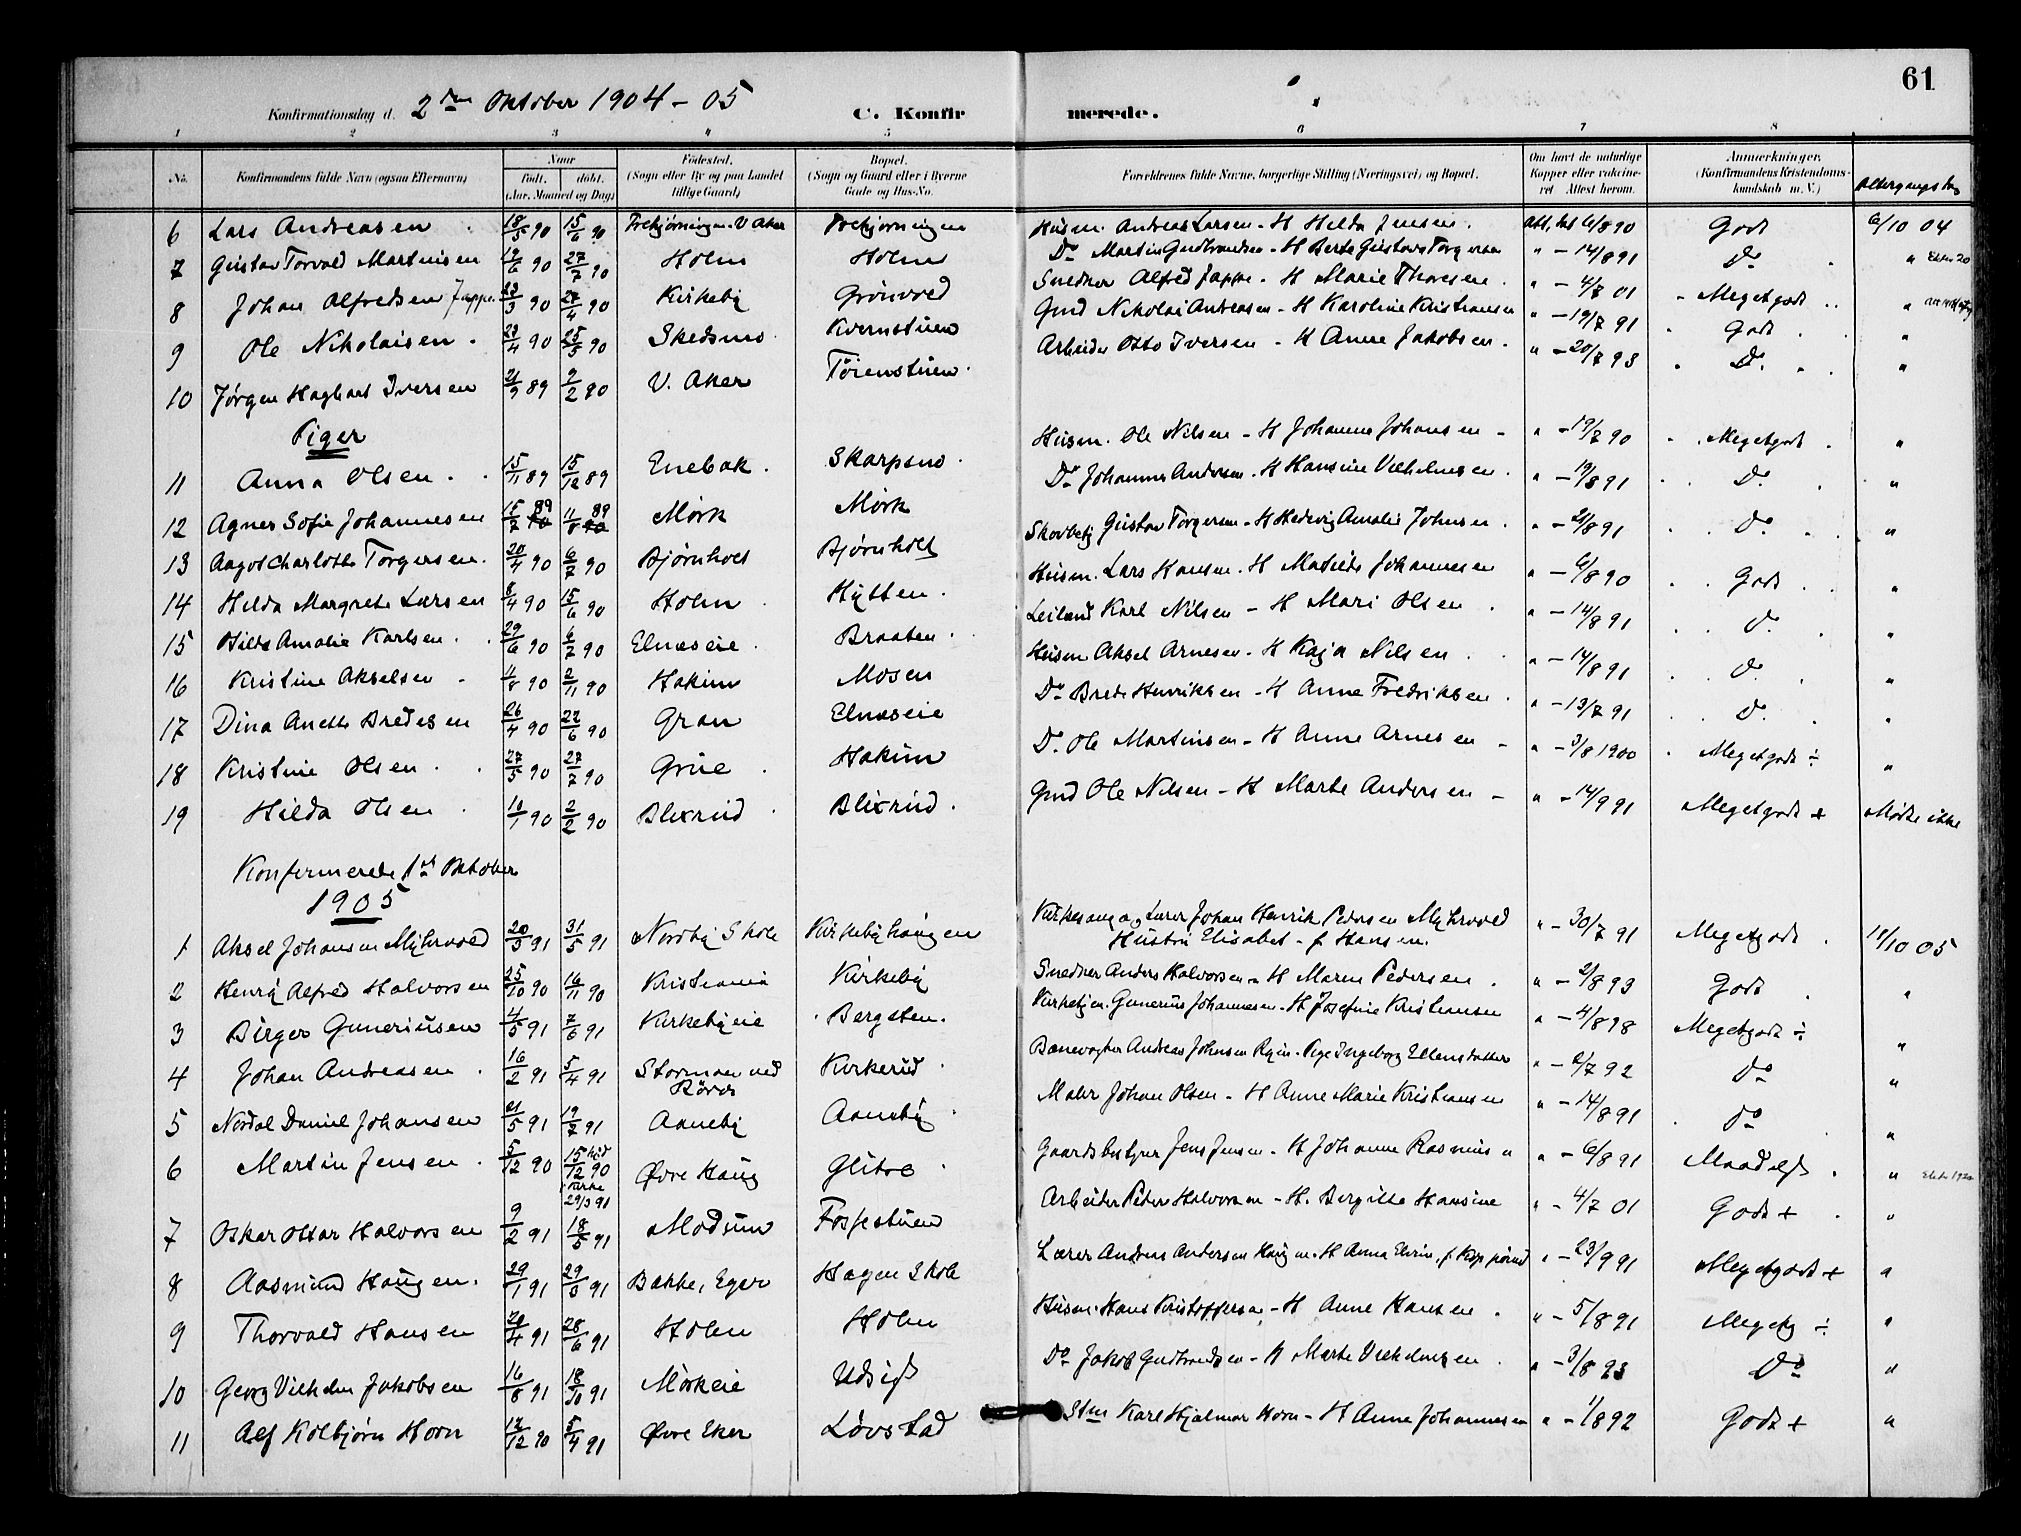 61
Konfirmationsdag d. 2den Oktober 1904 - 05 C. Konfirmerede.
1 2 3 4 5 6 7 8
No. Konfirmandens fulde Navn (ogsaa Efternavn) Naar født. døbt. (Aar, Maaned og Dag) Fødested. (Sogn eller By og paa Landet tillige Gaard) Bopæl. (Sogn og Gaard eller i Byerne Gade og Hus-No. Forældrenes fulde Navne, borgerlige Stilling (Næringsvei) og Bopæl. Om havt de naturlige Kopper eller vaccineret Attest herom. Anmærkninger. (Konfirmandens Kristendomskundskab m. V.) Altergangsdag
6 Lars Andreasen 18/5 90 15/6 90 V Aker Husm. Andreas Larsen - H Hilda Jensen. 6/8 90 Godt 6/10 04
7 Gustav Torvald Martinsen 19/6 90 27/7 90 Holm Holm Do Martin Gudbrandsen - H Berte Gustava Torgersen " - 14/8 91 Do "
8 Johan Alfredsen Jappe 23/3 90 27/4 90 Kirkeby Grönvold Snedker Alfred Jappe - H Marie Thoresen " - 4/7 01 Meget godt "
9 Ole Nikolaisen 23/4 90 25/5 90 Skedsmo Kvernstuen Gmd Nikolai Andreasen - H Karoline Kristiansen " - 19/7 91 Godt "
10 Jørgen Hagbart Iversen 21/9 89 9/2 90 V. Aker Törenstuen Arbeider Otto Iversen - H Anne Jakobsen " - 20/7 93 Do "
Piger
11 Anna Olsen 15/11 89 15/12 89 Enebak Skarpsno Husm. Ole Nilsen - H Johanne Johansen " - 19/7 90 Meget godt "
12 Agnes Sofie Johannesen 15/7 89 11/8 89 Mörk Mörk Do Johannes Andersen - H Hansine Vilhelmsen " - 19/8 91 Do "
13 Aagot Charlotte Torgersen 20/4 90 6/7 90 Bjørnholt Bjørnholt Skovbetj Gustav Torgersen - H Hedevig Amalie Johnsen " - 21/8 91 Do "
14 Hilda Margrete Larsen 8/4 90 15/6 90 Holm Hytten Husm. Lars Hansen - H Matilde Johannesen " - 6/8 90 Godt "
15 Hilda Amalie Karlsen 29/6 90 6/7 90 Elnæseie Braaten Leilænd Karl Nilsen - H Mari Olsen " - 14/8 91 Do "
16 Kristine Akselsen 4/8 90 2/11 90 Hakim Mosen Husm Aksel Arnesen - H Kaja Nilsen " - 14/8 91 Do "
17 Dina Anette Bredesen 26/4 90 22/6 90 Gran Elnæseie Do Brede Henriksen - H Anne Fredriksen " - 13/7 91 Do "
18 Kristine Olsen 27/5 90 27/7 90 Grue Hakim Do Ole Martinsen - H Anne Arnesen " - 3/8 1900 Meget godt ÷ "
19 Hilda Olsen 10/1 90 2/2 90 Blixrud Blixrud Gmd Ole Nilsen - H Marte Andersen " - 14/9 91 Meget godt + Mødte ikke
Konfirmerede 1ste Oktober
1905
1 Aksel Johansen Myhrvold 20/3 91 31/5 91 Nordby Skole Kirkebyhaugen Kirkesang. og Lærer Johan Henrik Pedersen Myhrvold
Hustru Elisabet - f Hansen. " - 30/7 91 Meget godt 11/10 05
2 Henry Alfred Halvorsen 25/10 90 16/11 90 Kristiania Kirkeby Snedker Anders Halvorsen - H Maren Pedersen " - 2/8 93 Godt "
3 Birger Gunerius­en 4/5 91 7/6 91 Kirkebyeie Bergsten Kirketjen. Gunerius Johannesen - H Josefine Kristiansen " - 4/8 98 Meget godt ÷ "
4 Johan Andreasen 16/2 91 5/4 91 Stormoen ved
Röros Kirkerud Banevogter Andreas Johnsen - Pige Ingeborg Ellensdatter " - 2/7 92 Do "
5 Nordal Daniel Johansen 21/5 91 19/7 91 Aaneby Aaneby Maler Johan Olsen - H Anne Marie Kristiansen " - 14/8 91 Do "
6 Martin Jensen 5/12 90 15/12 90 Kirke 29/3 91 Øvre Haug Glitre Gaardsbestyrer Jens Jensen - H Johanne Rasmus " - 6/8 91 Maadelgt "
7 Oskar Ottar Halvorsen 9/2 91 18/5 91 Modum Fossestuen Arbeider Peder Halvorsen - H. Bergitte Hansine " - 4/7 01 Godt + "
8 Aasmund Haugen 29/1 91 29/3 91 Bakke, Eger Hagen Skole Lærer Andreas Andersen Haugen - H Anna Elvine, f " - 23/9 91 Meget godt + "
9 Thorvald Hansen 20/4 91 28/6 91 Holm Holm Husm. Hans Kristoffersen - H Anne Hansen " - 5/8 91 Meget g ÷ "
10 Georg Vilhelm Jakobsen 16/8 91 18/10 91 Mörkeie Udsigt Do Jakob Gudbrandsen - H Marte Vilhelmsen " - 3/8 93 Do "
11 Alf Kolbjørn Horn 17/12 90 5/4 91 Øvre Eker Løvstad Stm Karl Hjalmar Horn - H Anne Johannesen " - 1/8 92 Godt + "